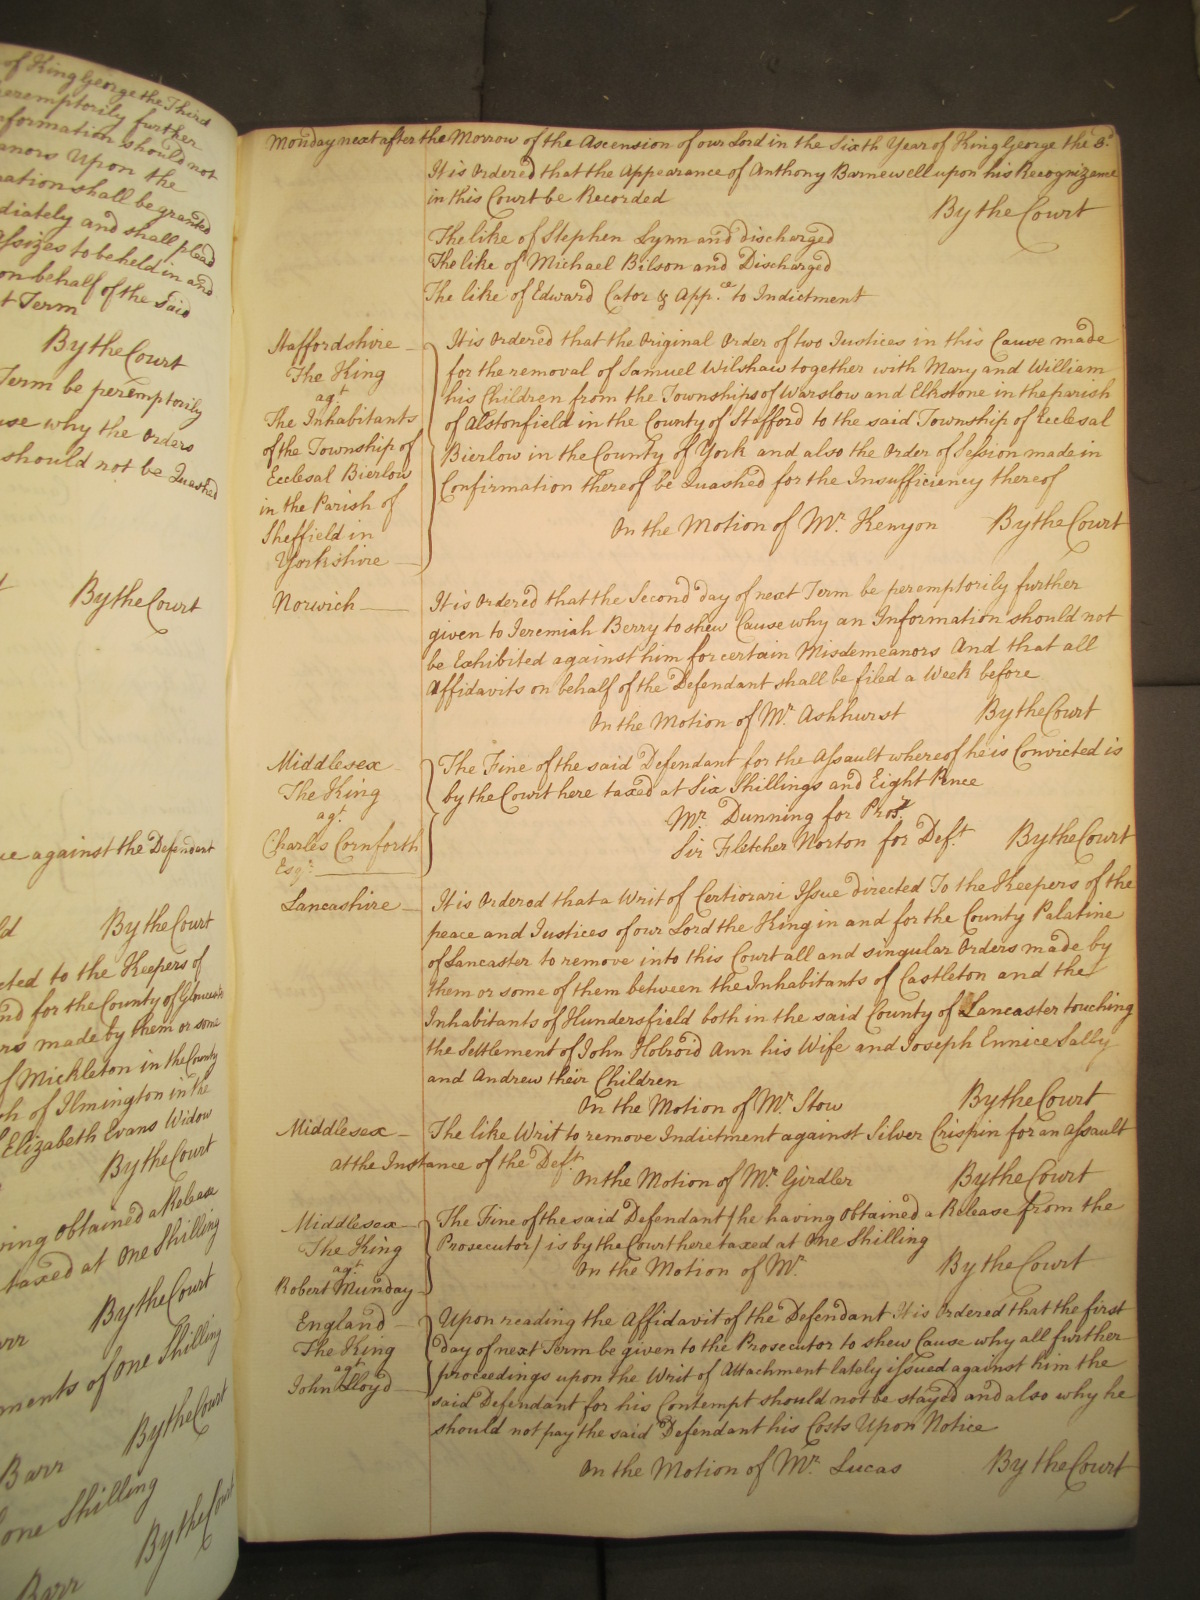 of King George the Third
peremptorily further
formation should not
anors Upon the
ation shall be granted
diately and shall plead
assizes to be held in and
on behalf of the Said
t Term
By the Court
Term be peremptorily
use why the Orders
should not be Quashed
By the Court
ue against the Defendant
By the Court
cted to the Keepers of
nd for the County of Gloucester
rs made by them or some
f Mickleton in the County
sh of Ilmington in the
Elizabeth Evans Widow
By the Court
ving obtained a Release
taxed at One Shilling
By the Court
arr
ments of one Shilling
By the Court
Barr
one Shilling
By the Court
Barr
Monday next after the Morrow of the Ascension of our Lord in the Sixth Year of King George the 3.d
It is Ordered that the Appearance of Anthony Barnewell upon his Recognizance
in this Court be Recorded By the Court
The like of Stephen Lynn and discharged
The like of Michael Bilson and Discharged
The like of Edward Cator & App.ce to Indictment
Staffordshire
The King
ag.t
The Inhabitants
of the Township of
Ecclesal Bierlow
in the Parish of
Sheffield in
Yorkshire
It is Ordered that the Original Order of two Justices in this Cause made
for the removal of Samuel Wilshaw together with Mary and William
his Children from the Townships of Warslow and Elkstone in the parish
of Alstonfield in the County of Stafford to the said Township of Ecclesal
Bierlow in the County of York and also the Order of Session made in
Confirmation thereof be Quashed for the Insufficiency thereof
On the Motion of Mr. Kenyon By the Court
Norwich
It is Ordered that the Second day of next Term be peremptorily further
given to Jeremiah Berry to shew Cause why an Information should not
be Exhibited against him for certain Misdemeanors And that all
Affidavits on behalf of the Defendant shall be filed a Week before
On the Motion of Mr. Ashhurst By the Court
Middlesex
The King
ag.t
Charles Cornforth
Esq.r
The Fine of the said Defendant for the Assault whereof he is Convicted is
by the Court here taxed at Six Shillings and Eight Pence
Mr. Dunning for Pros.r
Sir Fletcher Norton for Def.t By the Court
Lancashire
It is Ordered that a Writ of Certiorari Issue directed To the Keepers of the
peace and Justices of our Lord the King in and for the County Palatine
of Lancaster to remove into this Court all and singular Orders made by
them or some of them between the Inhabitants of Castleton and the
Inhabitants of Hundersfield both in the said County of Lancaster touching
the Settlement of John Holroid Ann his Wife and Joseph Eunice Sally
and Andrew their Children
On the Motion of Mr. Stow By the Court
Middlesex
The like Writ to remove Indictment against Silver Crispin for an Assault
at the Instance of the Def.t
On the Motion of Mr. Girdler By the Court
Middlesex
The King
ag.t
Robert Munday
The Fine of the said Defendant /he having Obtained a Release from the
Prosecutor/ is by the Court here taxed at One Shilling
On the Motion of Mr. By the Court
England
The King
ag.t
John Lloyd
Upon reading the Affidavit of the Defendant It is Ordered that the first
day of next Term be given to the Prosecutor to shew Cause why all further
proceedings upon the Writ of Attachment lately issued against him the
said Defendant for his Contempt should not be stayed and also why he
should not pay the said Defendant his Costs Upon Notice
On the Motion of Mr. Lucas By the Court